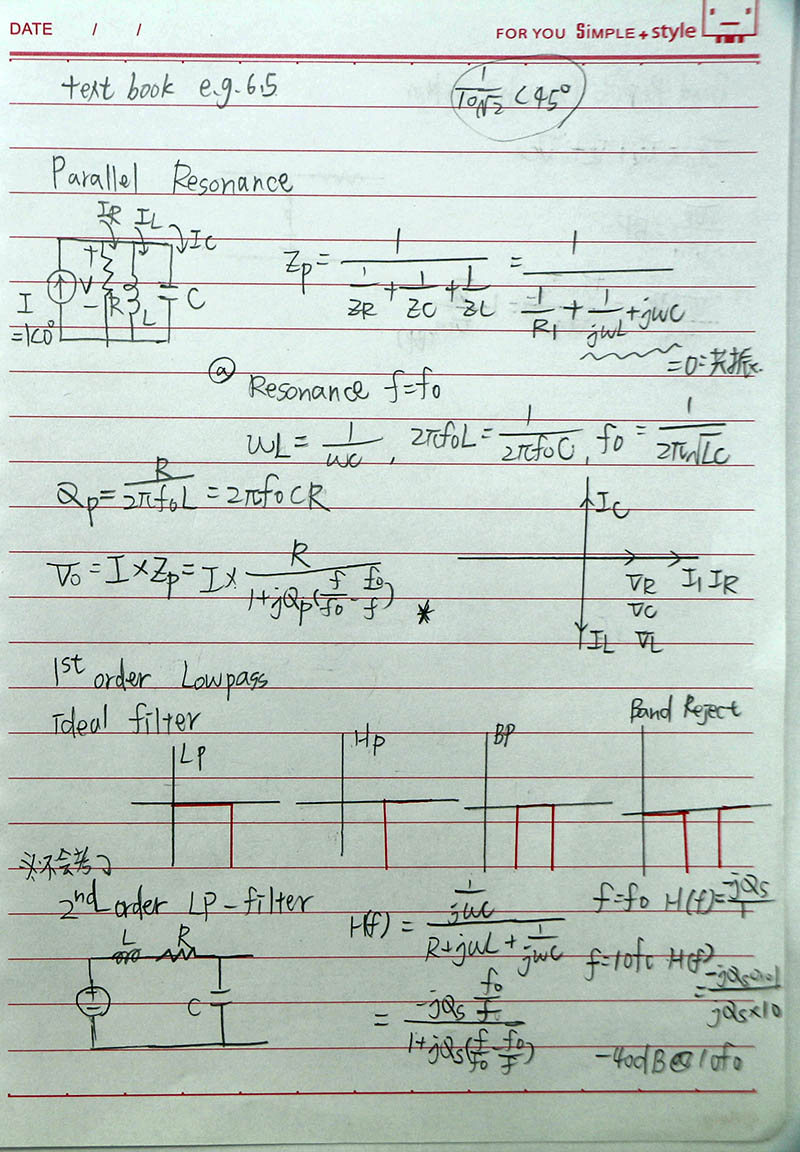 DATE / /
FOR YOU SIMPLE + style
text book e.g. 6.5
1/(10√2) <45°
Parallel Resonance
IR IL IC
+ V − R L C
I =1<0°
Zp = 1/(1/ZR + 1/ZC + 1/ZL) = 1/(1/R1 + 1/jωL + jωC)
=0:共振.
ⓐ Resonance f=f0
ωL = 1/ωC , 2πf0L = 1/(2πf0C) , f0 = 1/(2π√LC)
Qp = R/(2πf0L) = 2πf0CR
V0 = I × Zp = I × R/(1+jQp(f/f0 - f0/f)) *
IC
VR I1 IR
VC
IL VL
1st order Lowpass
Ideal filter
LP
HP
BP
Band Reject
※不会考
2nd order LP-filter
L R
+ − C
H(f) = (1/jωC)/(R+jωL+1/jωC)
= (-jQs f0/f)/(1+jQs(f/f0 - f0/f))
f=f0 H(f)= -jQs/1
f=10f0 H(f)
= -jQs×0.1/(jQs×10)
-40dB@10f0